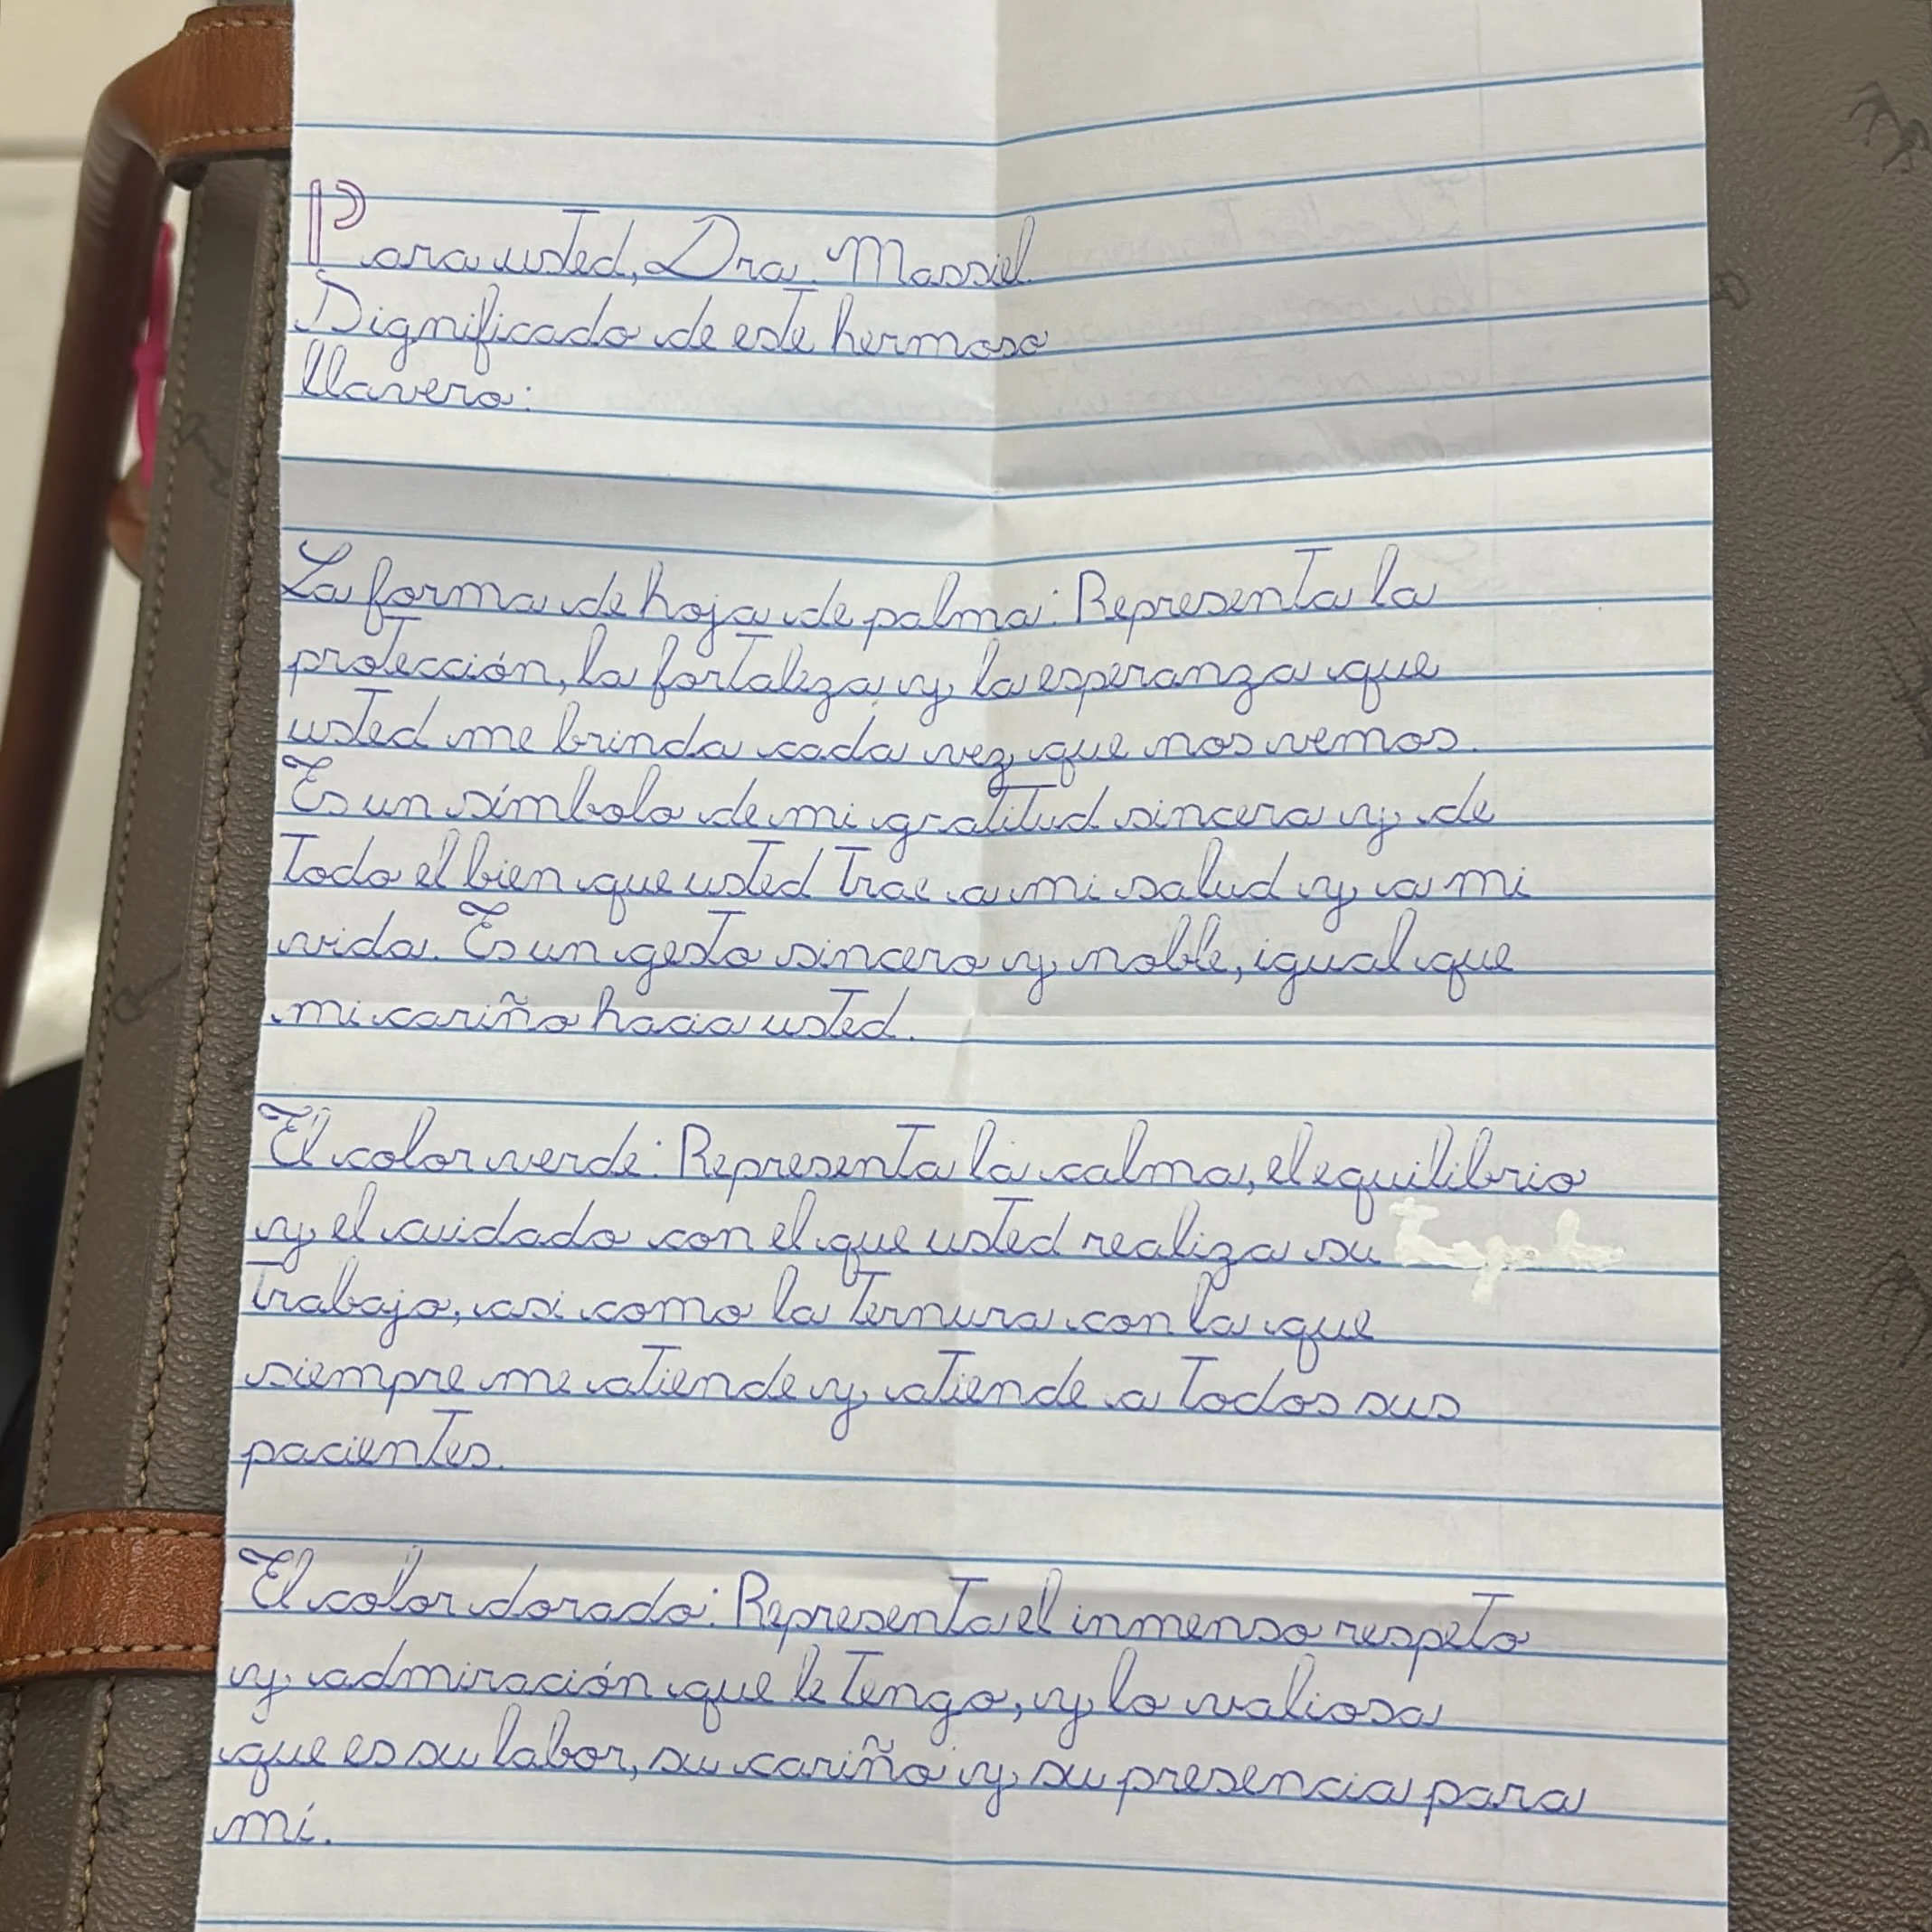 Para usted, Dra. Massiel.
Significado de este hermoso
llavero:
La forma de hoja de palma: Representa la
protección, la fortaleza y la esperanza que
usted me brinda cada vez que nos vemos.
Es un símbolo de mi gratitud sincera y de
todo el bien que usted trae a mi salud y a mi
vida. Es un gesto sincero y noble, igual que
mi cariño hacia usted.
El color verde: Representa la calma, el equilibrio
y el cuidado con el que usted realiza su
trabajo, así como la ternura con la que
siempre me atiende y atiende a todos sus
pacientes.
El color dorado: Representa el inmenso respeto
y admiración que le tengo, y lo valiosa
que es su labor, su cariño y su presencia para
mí.